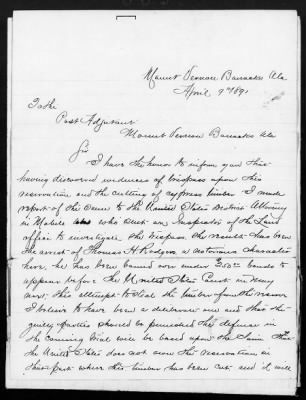 Mount Vernon Barracks Ala
April 9th 1891
To the
Post Adjutant
Mount Vernon Barracks Ala
Sir
I have the honor to inform you that
having discovered evidences of trespass upon this
reservation and the cutting of cypress timber I made
report of the same to the United States District Attorney
in Mobile who sent an Inspector of the Land
office to investigate the trespass the result has been
the arrest of Thomas H. Rodgers a notorious character
here, he has been bound over under $500 00 bonds to
appear before the United States Court in May
next; this attempt to steal the timber from the reserve
I believe to have been a deliberate one and that the
guilty parties should be punished the defense in
the coming trial will be based upon the claim that
the United States does not own the reservation in
that part where this timber has been cut and it will